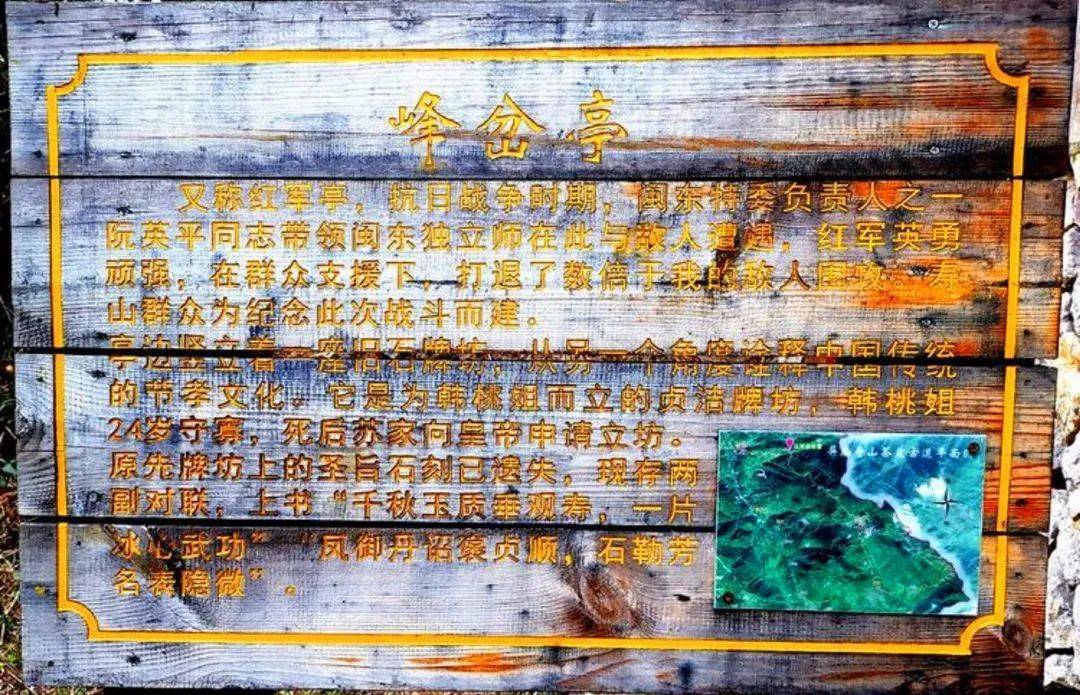 峰岔亭
又称红军亭，抗日战争时期，闽东特委负责人之一
阮英平同志带领闽东独立师在此与敌人遭遇，红军英勇
顽强，在群众支援下，打退了数倍于我的敌人围攻。寿
山群众为纪念此次战斗而建。
亭边竖立着一座旧石牌坊，从另一个角度诠释中国传统
的节孝文化。它是为韩桃姐而立的贞洁牌坊，韩桃姐
24岁守寡，死后苏家向皇帝申请立坊。
原先牌坊上的圣旨石刻已遗失，现存两
副对联，上书“千秋玉质垂观寿，一片
冰心武功”“凤御丹诏褒贞顺，石勒芳
名表隐微”。